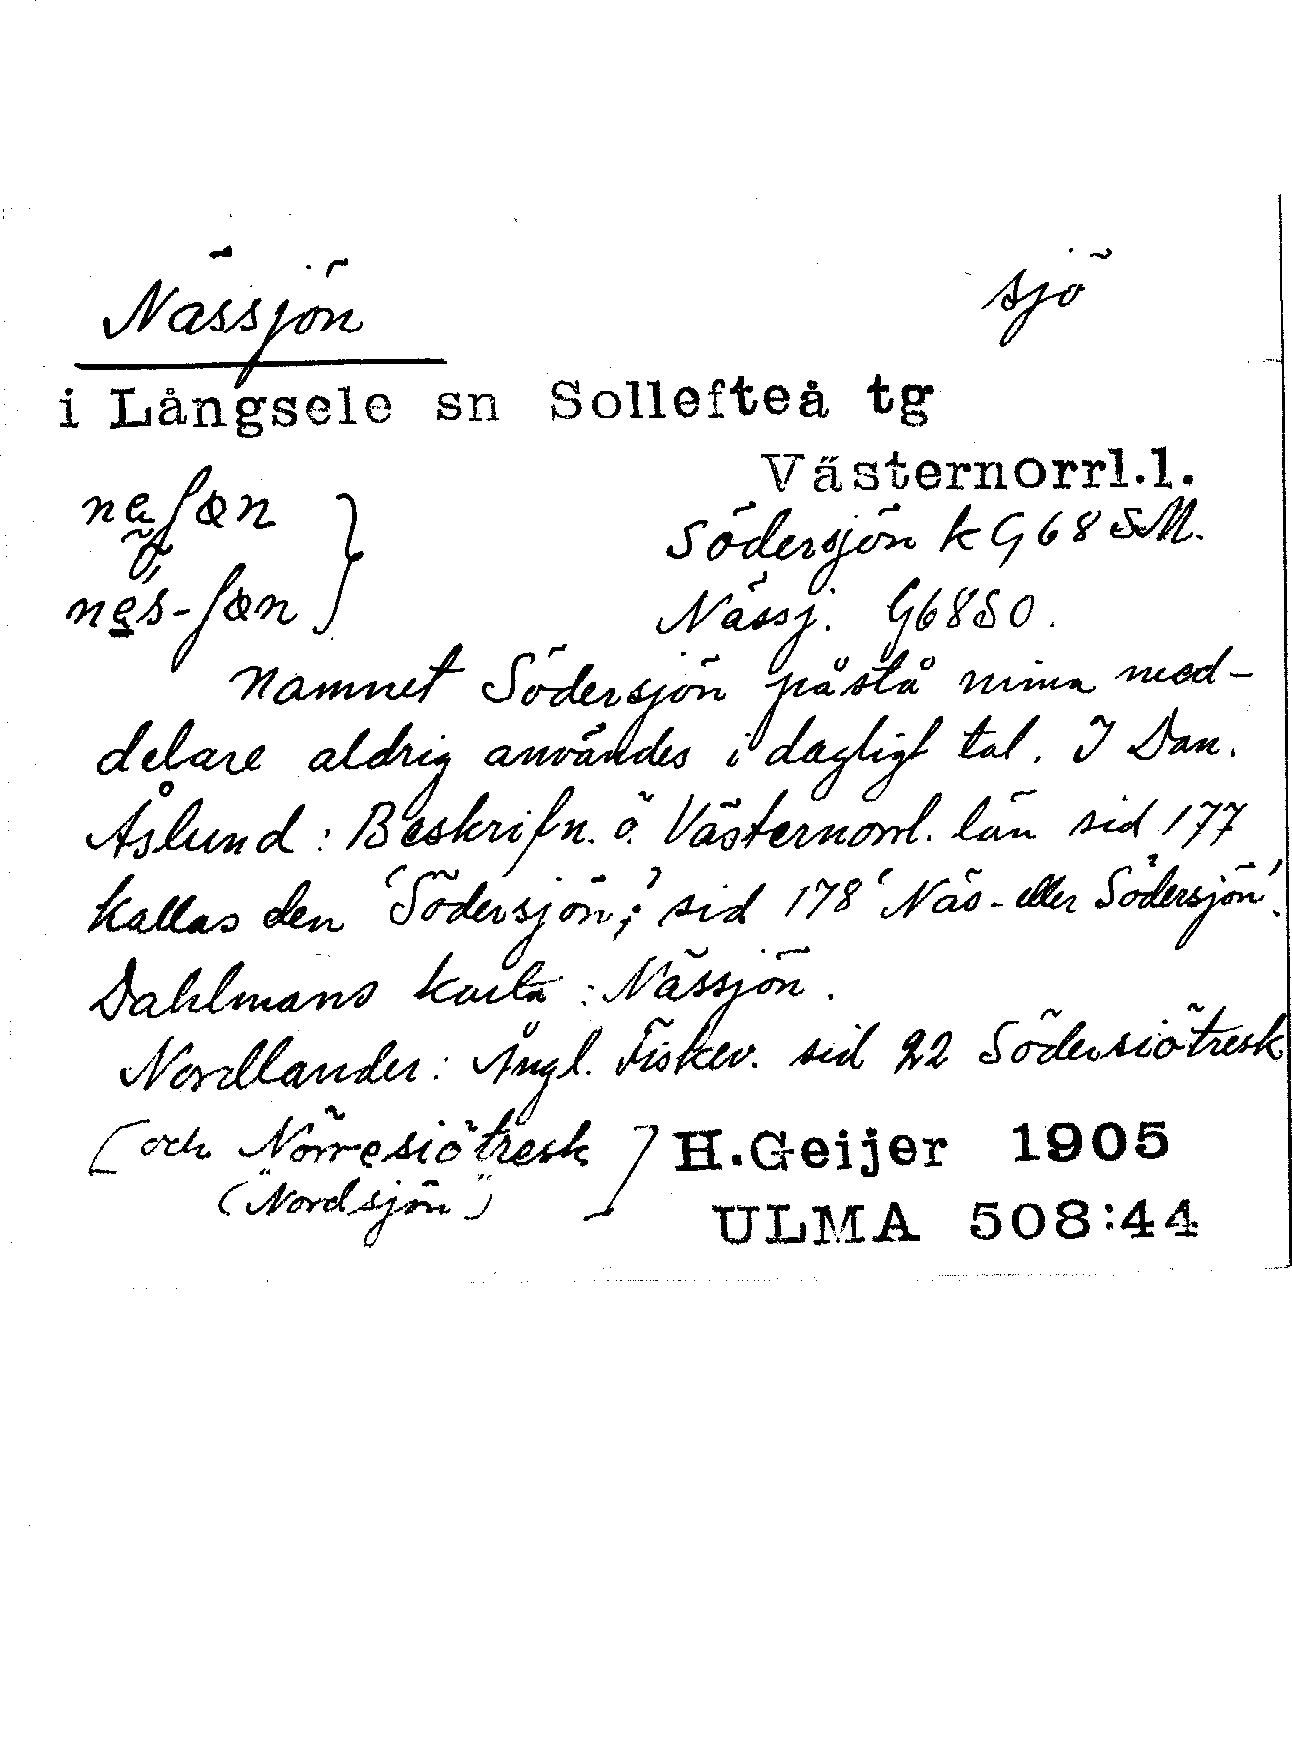 Nässjön sjö
i Långsele sn Sollefteå tg
Västernorrl.l.
neʃɶn
nes-ʃɶn
Södersjön k G68 SM.
Nässj. G68SO.
Namnet Södersjön påstå mina med-
delare aldrig användes i dagligt tal. I Dan.
Åslund: Beskrifn. ö. Västernorrl. län sid 177
kallas den 'Södersjön'; sid 178 'Näs- eller Södersjön'.
Dahlmans karta: Nässjön.
Nordlander: Ångl. Fiskev. sid 22 Södersiötresk
[och Nörresiötresk
("Nordsjön")]
H.Geijer 1905
ULMA 508:44